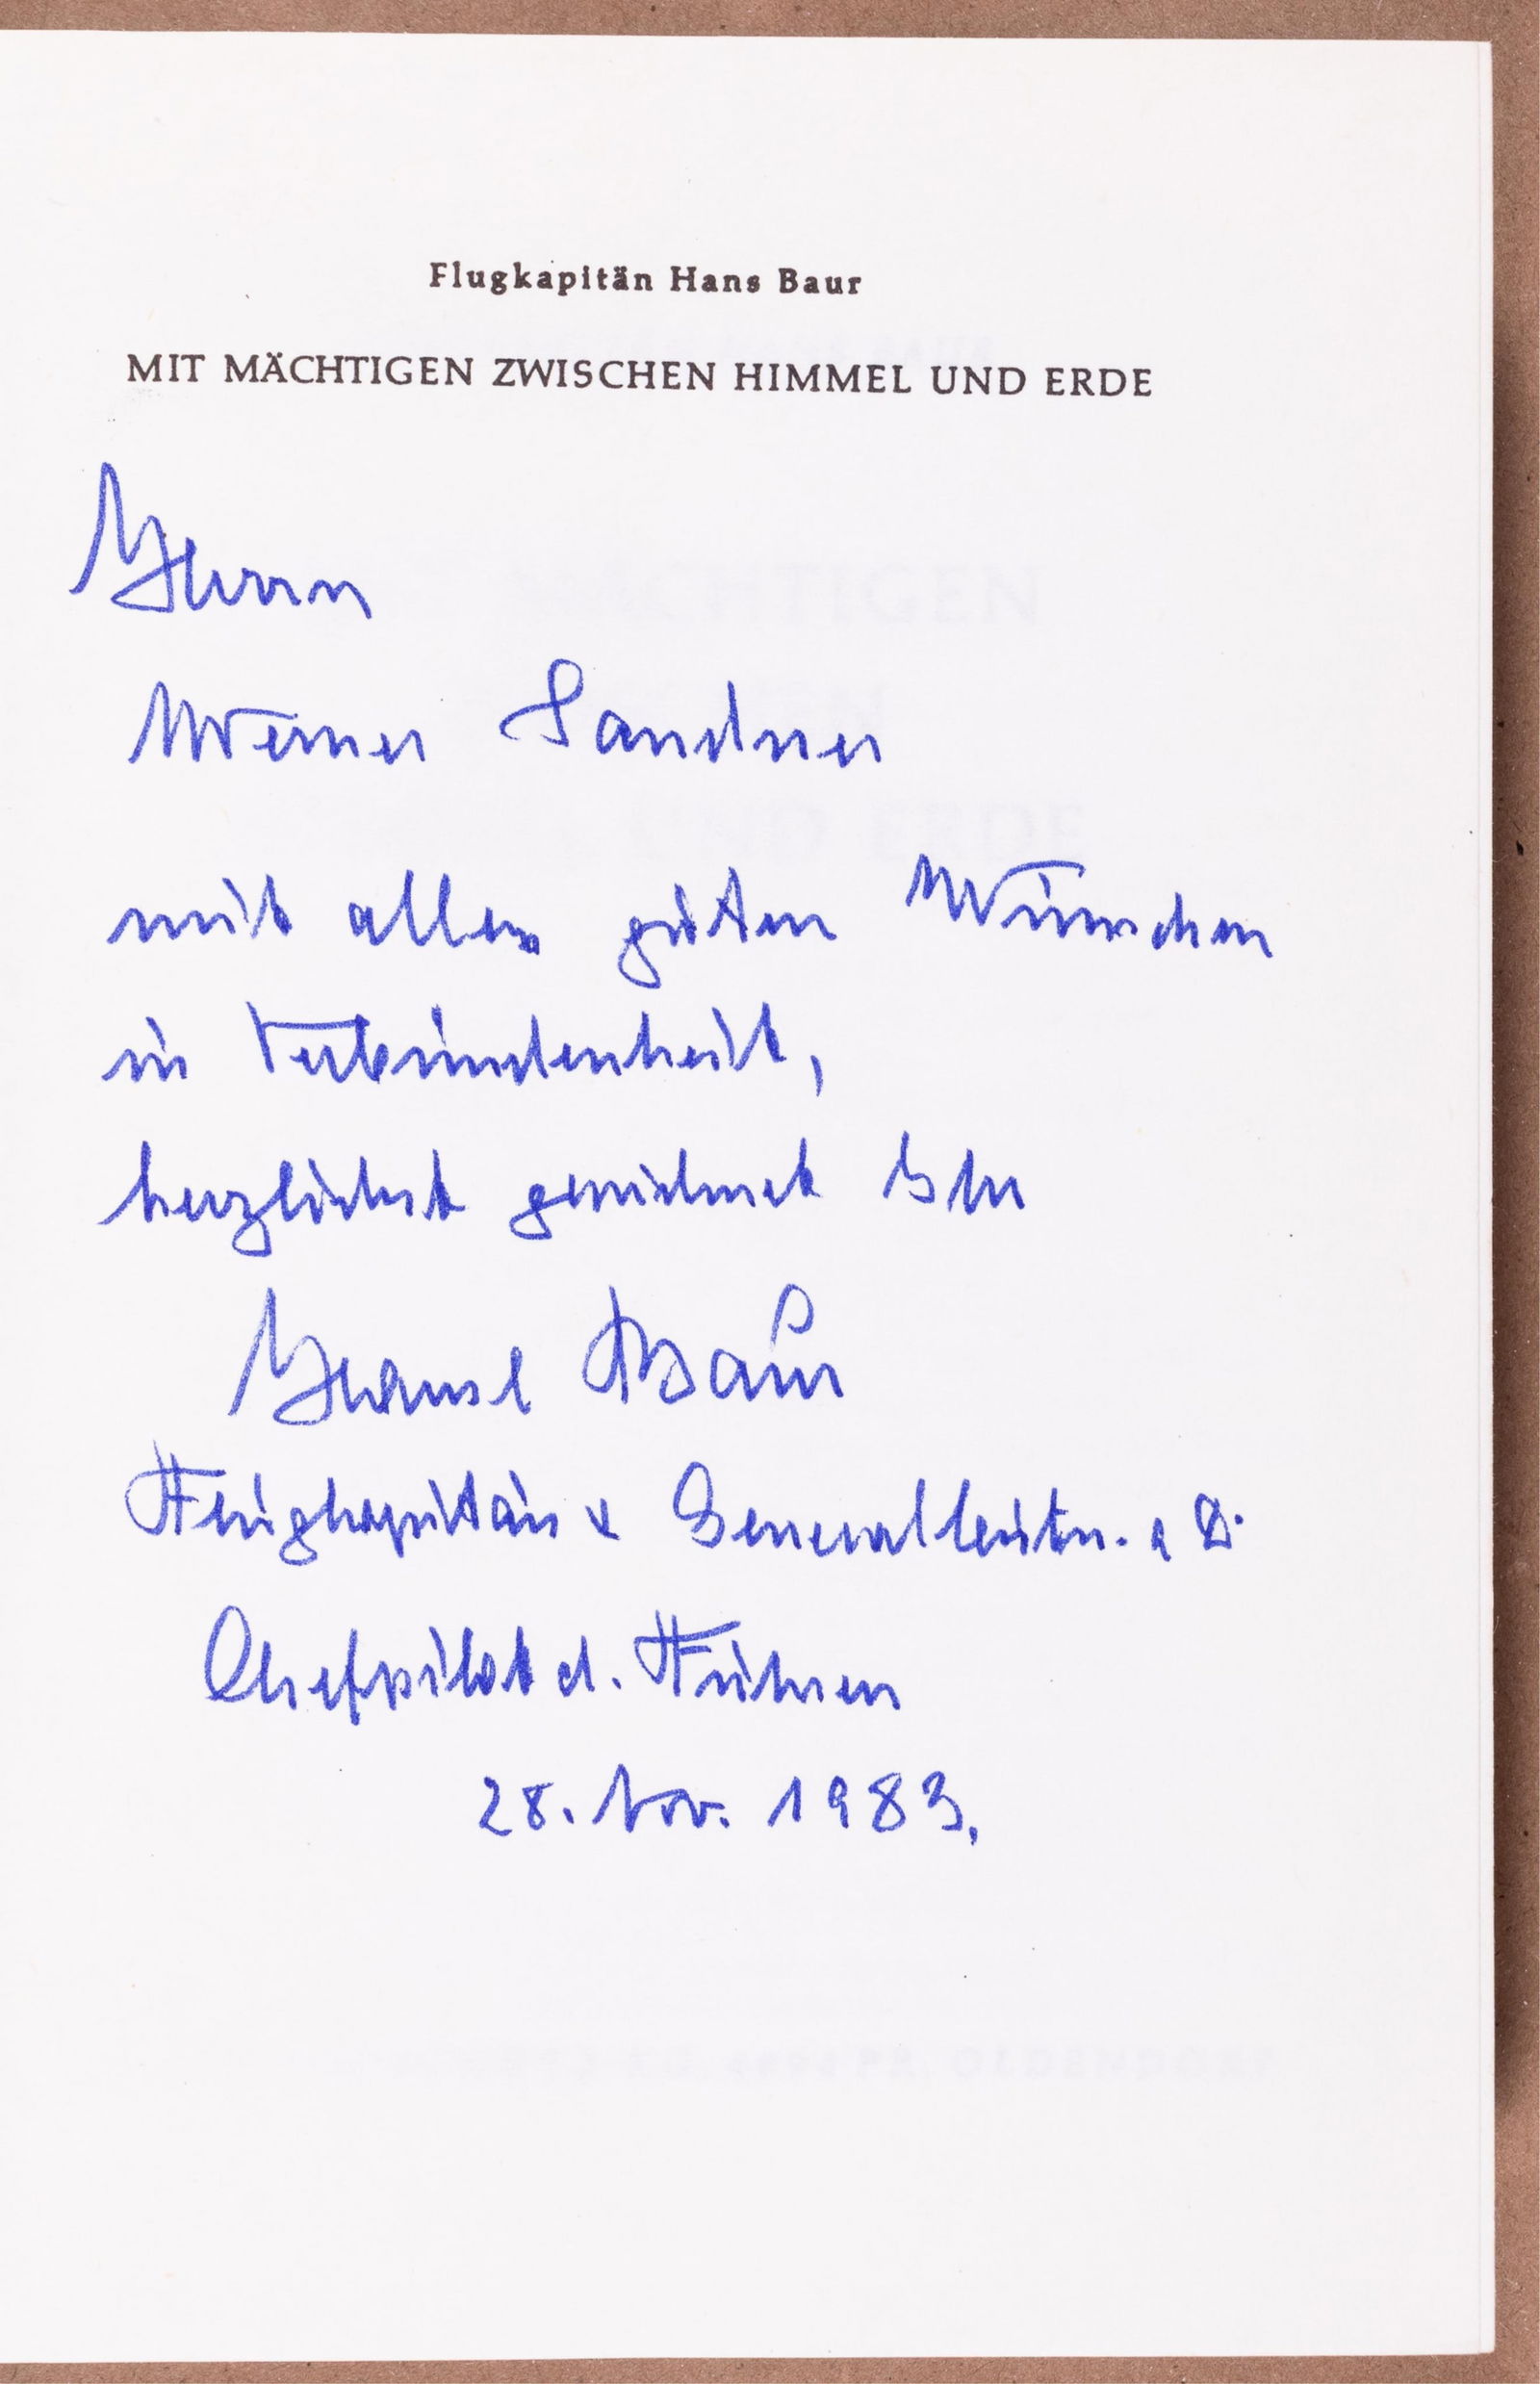 Flugkapitän Hans Baur
MIT MÄCHTIGEN ZWISCHEN HIMMEL UND ERDE
Herrn
Werner Sandner
mit allen guten Wünschen
in Verbundenheit,
herzlichst gewidmet Ihr
Hansl Baur
Flugkapitän u Generalleutn. a D.
Chefpilot d. Führers
28. Nov. 1983.